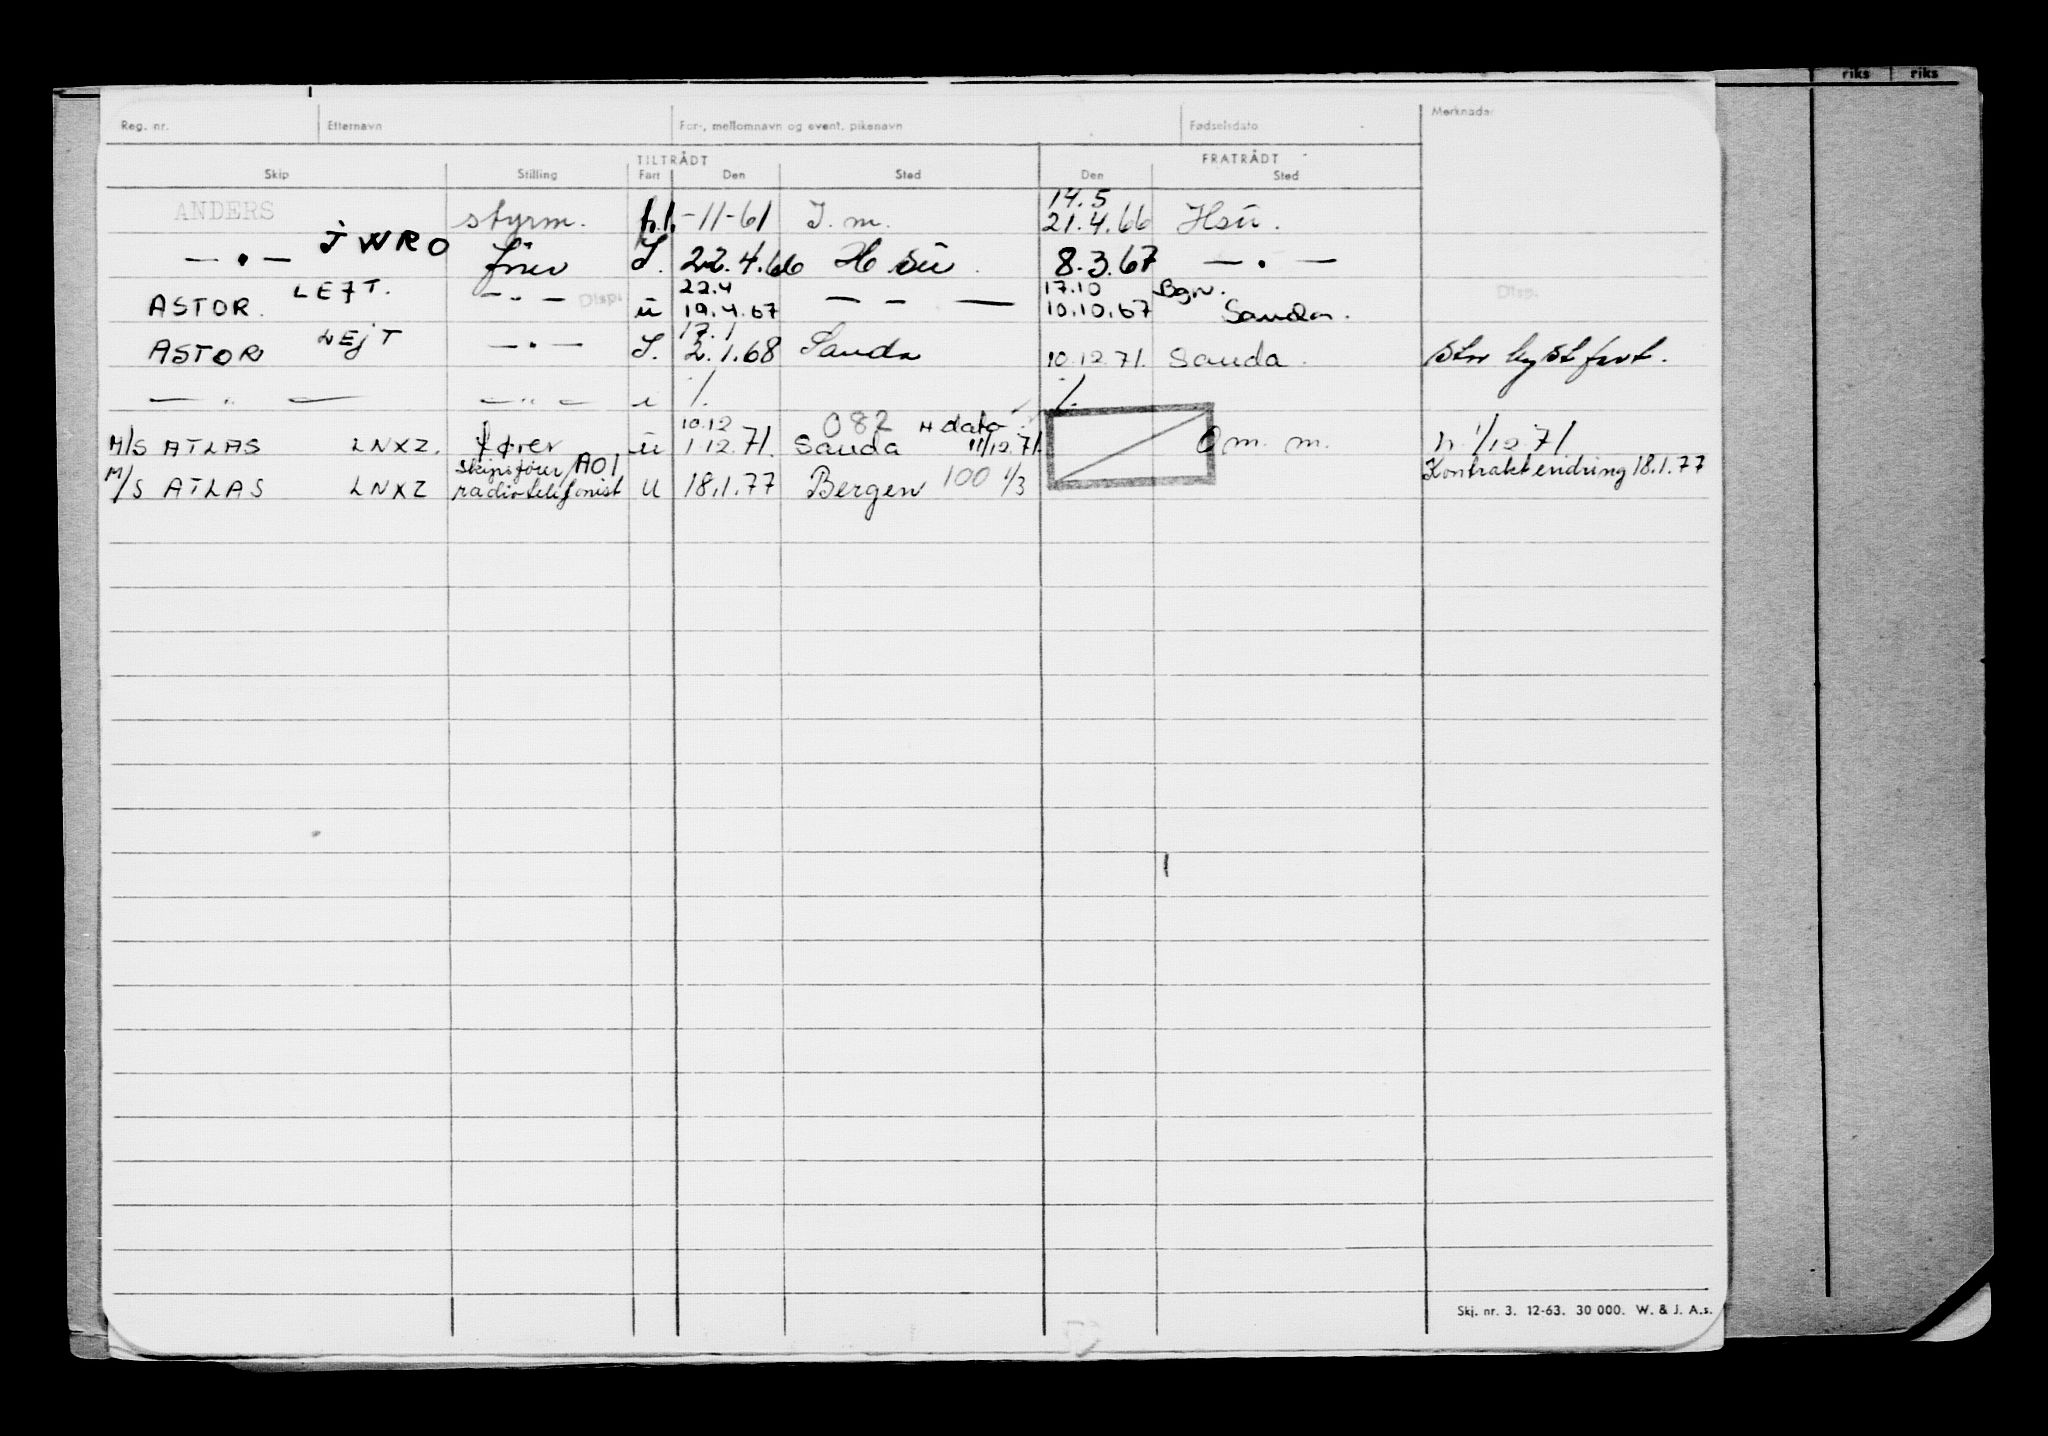 riks riks
Reg. nr. Etternavn For-, mellomnavn og event. pikenavn Fødselsdato Merknader
TILTRÅDT FRATRÅDT
Skip Stilling Fart Den Sted Den Sted
14.5
ANDERS styrm. -11-61 I. m. 21.4.66 Hsu.
— • — JWRO fører I. 22.4.66 H su. 8.3.67 — • —
LEJT. 22.4 17.10 Bgn.
ASTOR. — " — Disp. u 19.4.67 — — — 10.10.67 Sauda. Disp.
LEJT 17.1
ASTOR — • — I. 2.1.68 Sauda 10.12.71. Sauda. Stor kystfart.
— " — — " — u ./. ./.
10.12 082 H dato
M/S ATLAS LNXZ. fører u 1.12.71. Sauda 11/12.71. O m. m. n. 1/12.71.
skipsfører/A01 Kontraktendring 18.1.77
M/S ATLAS LNXZ radiotelefonist U 18.1.77 Bergen 100 1/3
Skj. nr. 3. 12-63. 30 000. W. & J. A.s.